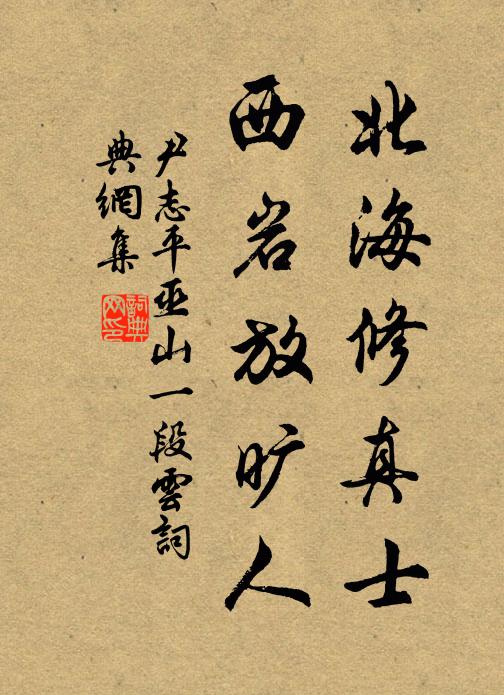 北海修真士
西岩放旷人
尹志平巫山一段雲詞
典網集
詞典網印